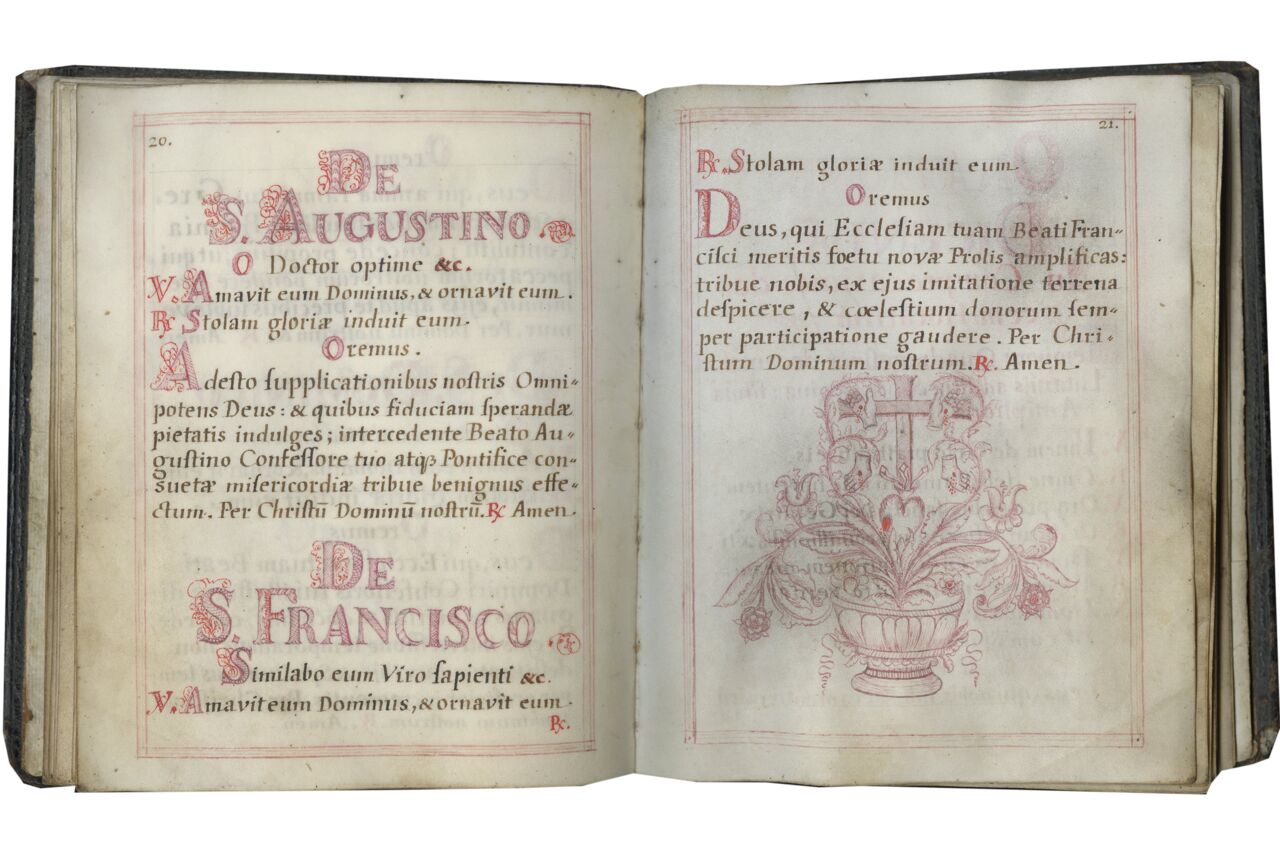 20.
DE
S. AUGUSTINO.
O Doctor optime &c.
V. Amavit eum Dominus, & ornavit eum.
℟ Stolam gloriæ induit eum.
Oremus.
Adeſto ſupplicationibus noſtris Omni-
potens Deus: & quibus fiduciam ſperandæ
pietatis indulges; intercedente Beato Au-
guſtino Confeſſore tuo atqꝫ Pontifice con-
ſuetæ miſericordiæ tribue benignus effe-
ctum. Per Chriſtū Dominū noſtrū. ℟ Amen.
DE
S. FRANCISCO.
Similabo eum Viro ſapienti &c.
V. Amavit eum Dominus, & ornavit eum.
℟.
21.
℟. Stolam gloriæ induit eum.
Oremus
Deus, qui Eccleſiam tuam Beati Fran-
ciſci meritis foetu novæ Prolis amplificas:
tribue nobis, ex ejus imitatione terrena
deſpicere, & cœleſtium donorum ſem-
per participatione gaudere. Per Chri-
ſtum Dominum noſtrum. ℟. Amen.